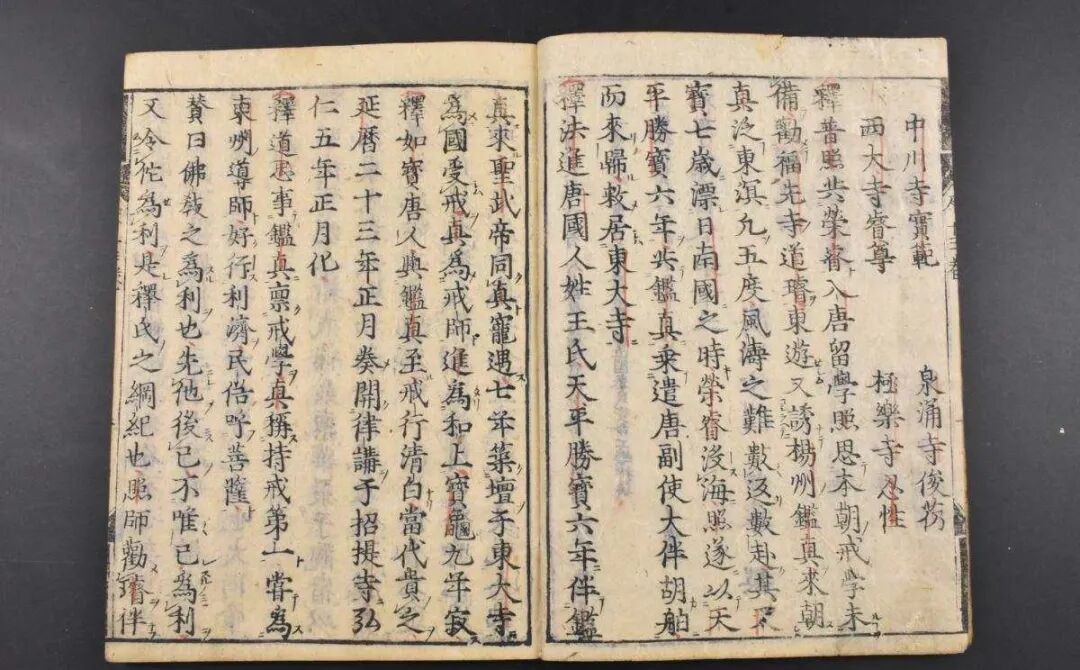 中川寺寶範 泉涌寺俊芿
西大寺睿尊 極樂寺忍性
釋普照共榮睿入唐留學照思本朝戒學未
備勸福先寺道璿東遊又誘楊州鑑真來朝
真泛東溟凡五度風濤之難數返數赴其
寶七歲漂日南國之時榮睿沒海照遂以天
平勝寶六年共鑑真乘遣唐副使大伴胡舶
而來歸敕居東大寺
釋法進唐國人姓王氏天平勝寶六年伴鑑
真來聖武帝同真寵遇七年築壇于東大寺
為國受戒真為戒師進為和上寶龜九年寂
釋如寶唐人與鑑真至戒行清白當代貴之
延曆二十三年正月奏開律講于招提寺弘
仁五年正月化
釋道忠事鑑真稟戒學真稱持戒第一嘗為
東州導師好行利濟民俗呼菩薩
贊曰佛教之為利也先他後己不唯己為利
又令佗為利是釋氏之綱紀也照師勸璿伴